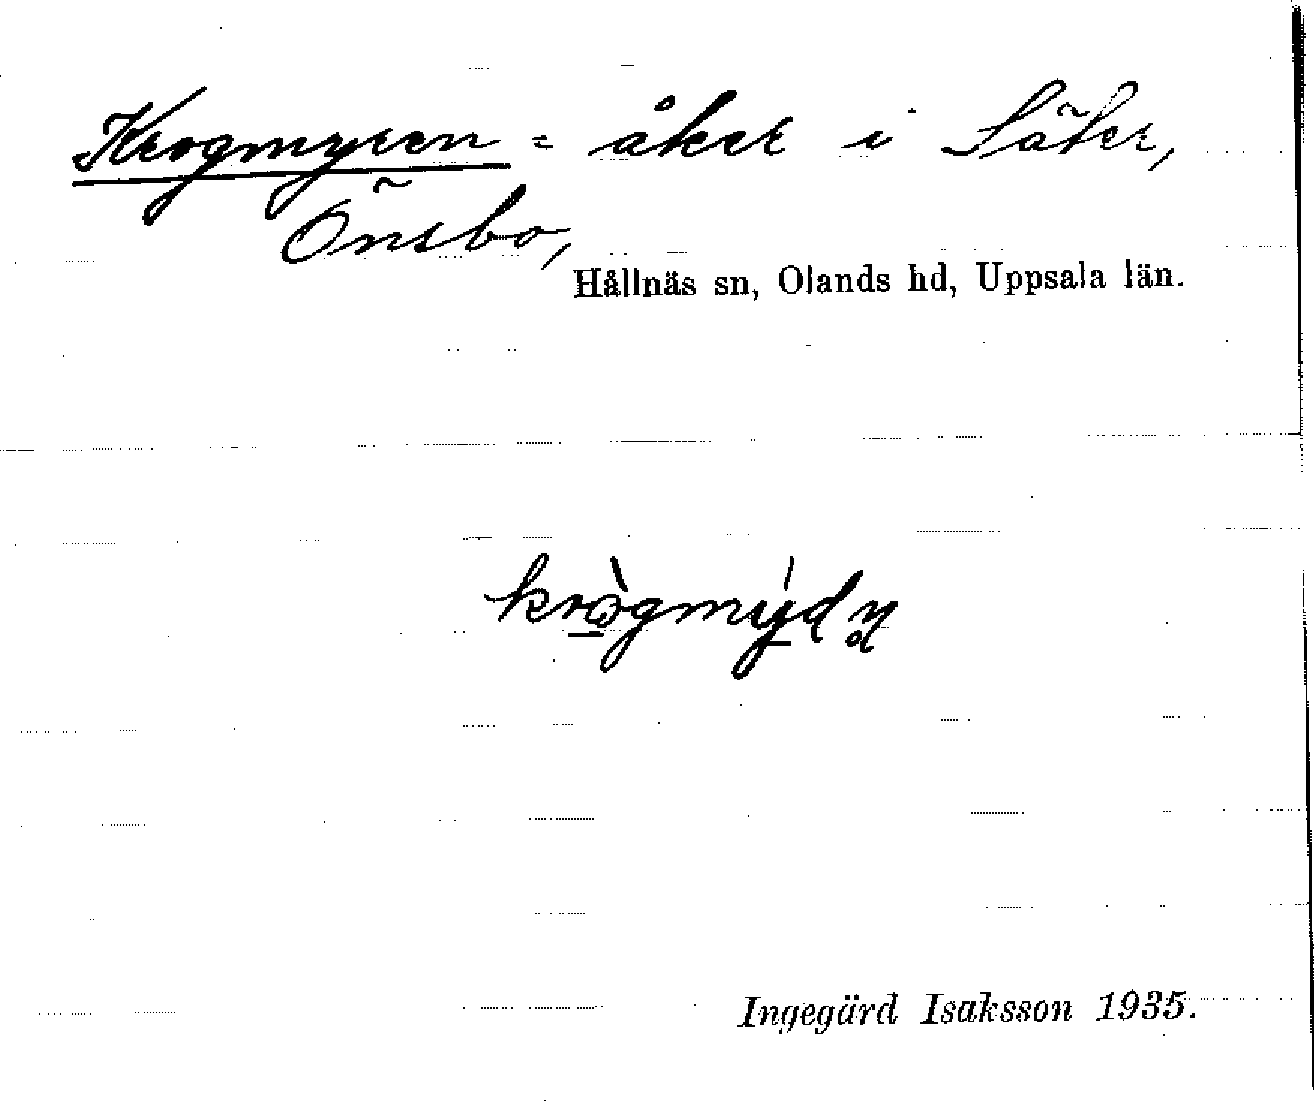 Krogmyren = åker i Säter,
Önsbo,
Hållnäs sn, Olands hd, Uppsala län.
krògmýdn̥
Ingegärd Isaksson 1935.